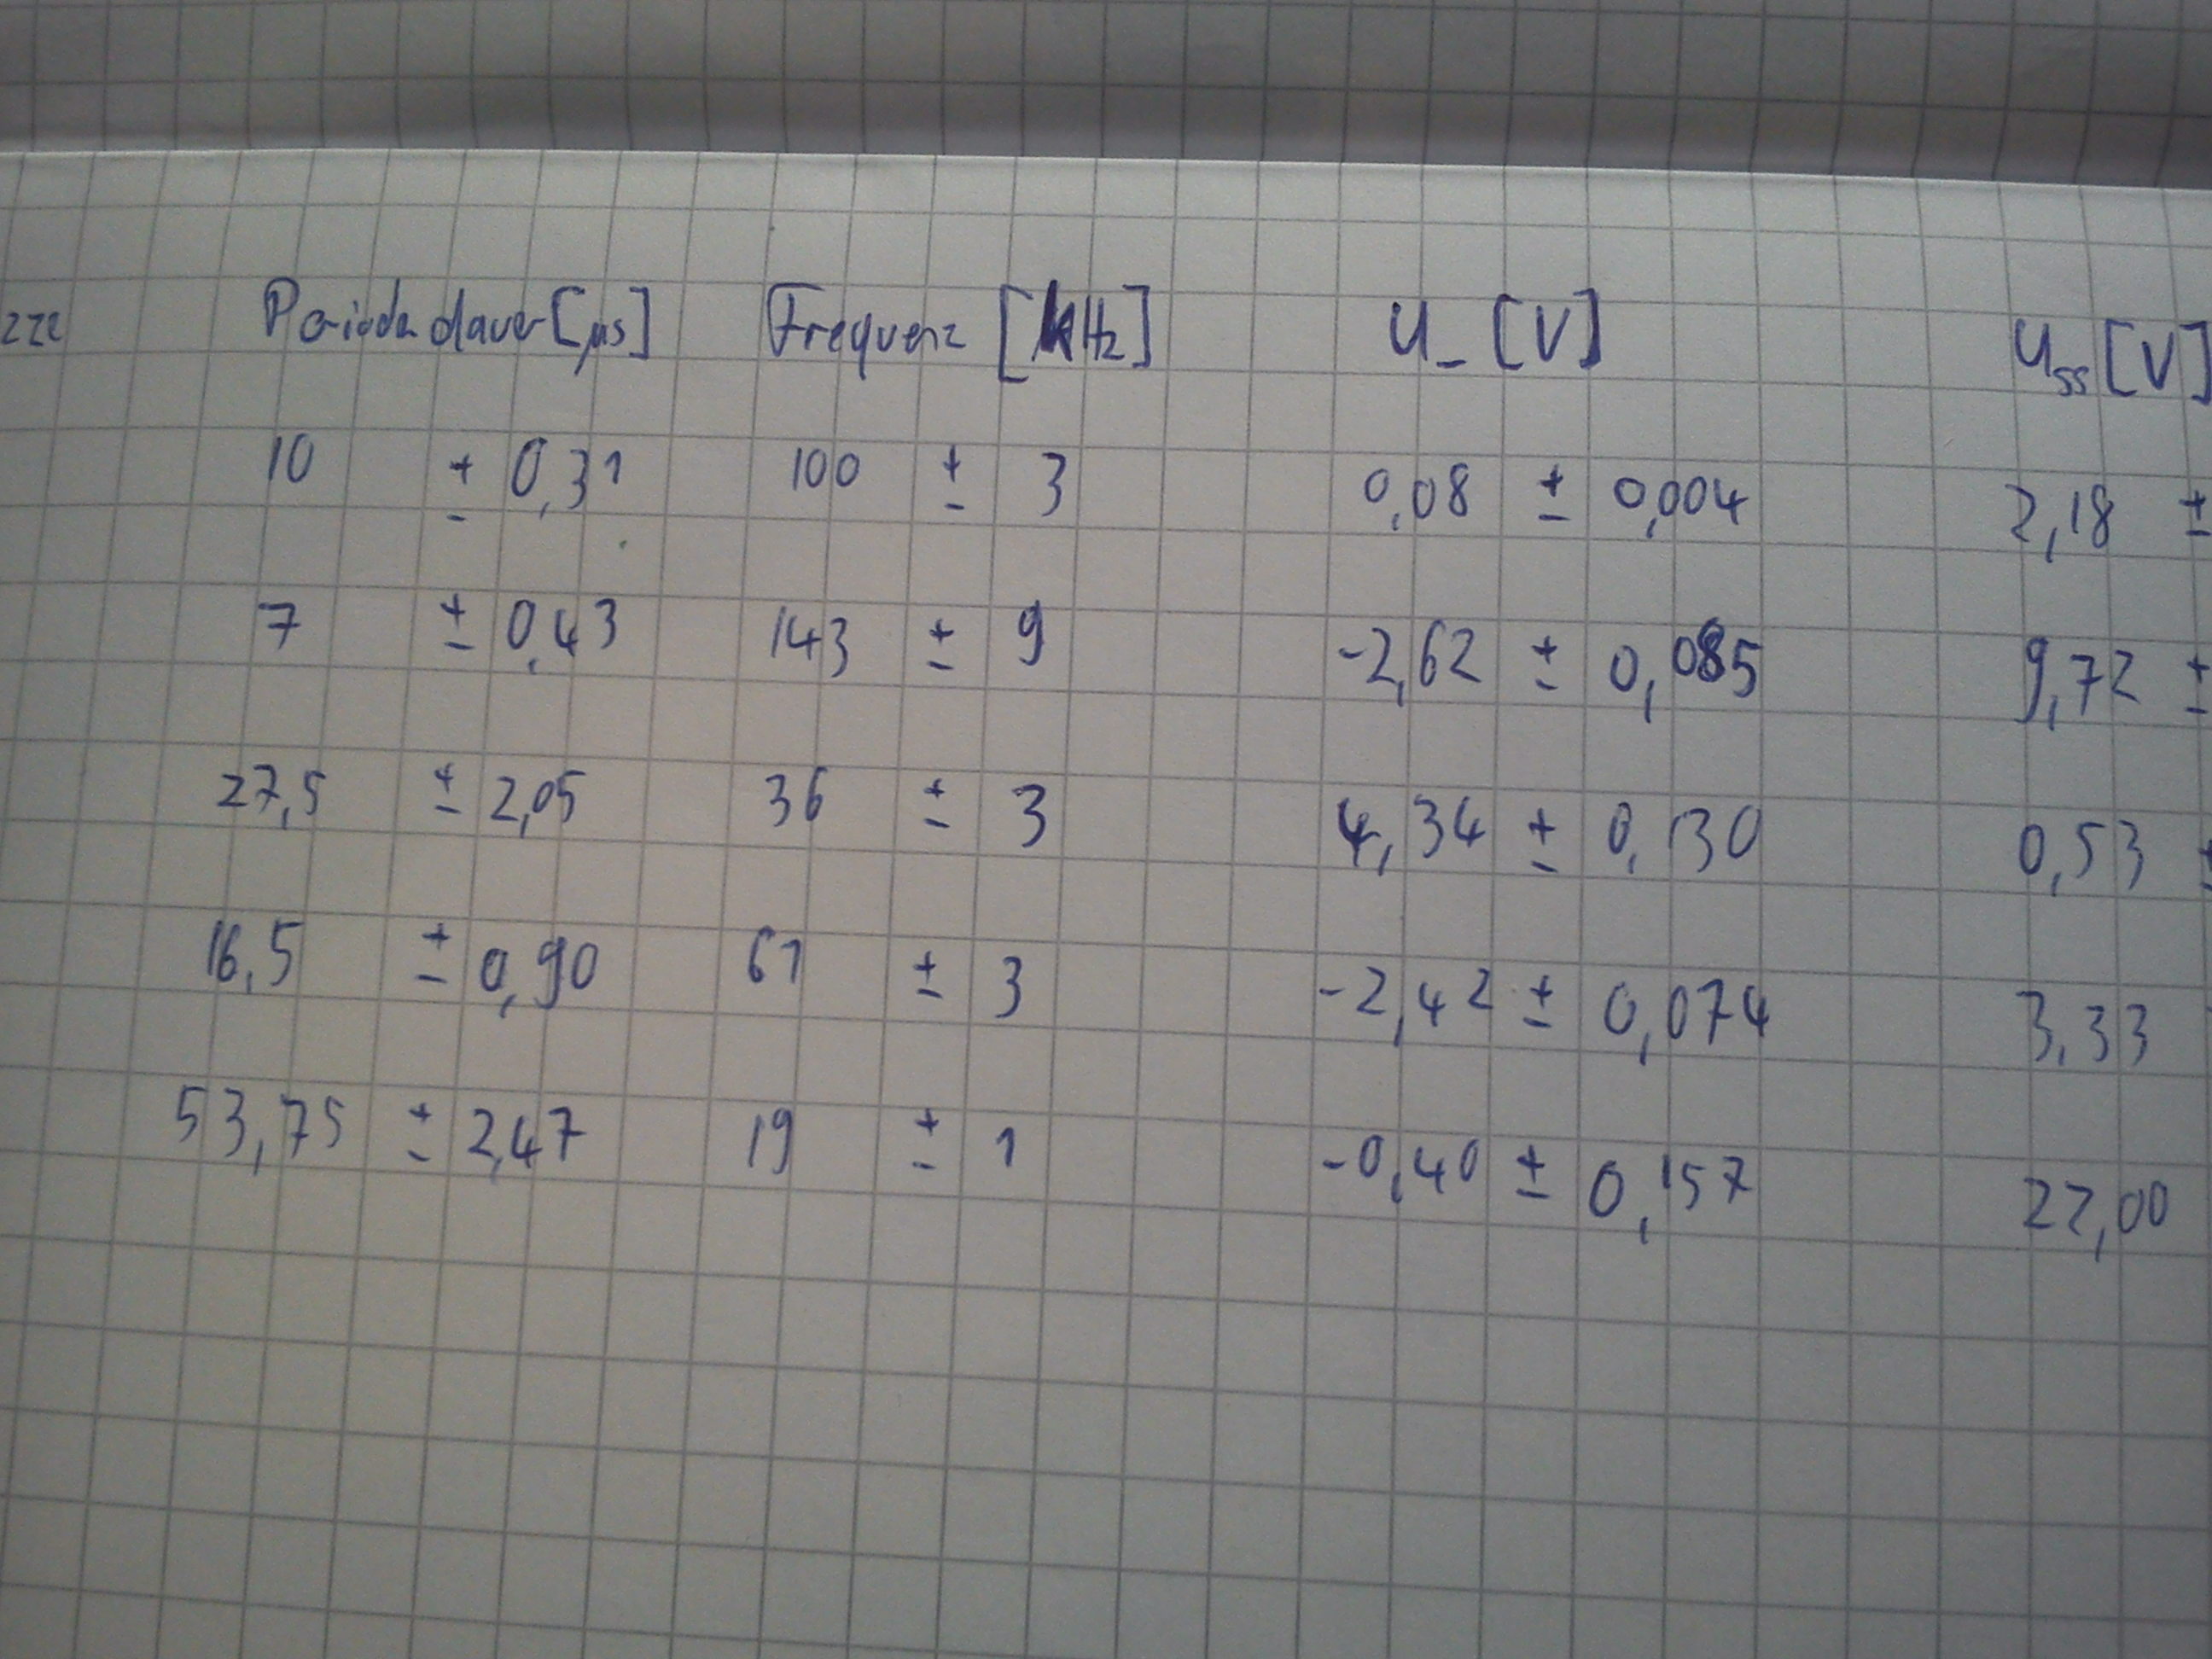 zze Periodendauer [µs] Frequenz [kHz] U_ [V] Uss [V]
10 ± 0,31 100 ± 3 0,08 ± 0,004 2,18 ±
7 ± 0,43 143 ± 9 -2,62 ± 0,085 9,72 ±
27,5 ± 2,05 36 ± 3 4,34 ± 0,130 0,53 ±
16,5 ± 0,90 61 ± 3 -2,42 ± 0,074 3,33
53,75 ± 2,47 19 ± 1 -0,40 ± 0,157 22,00